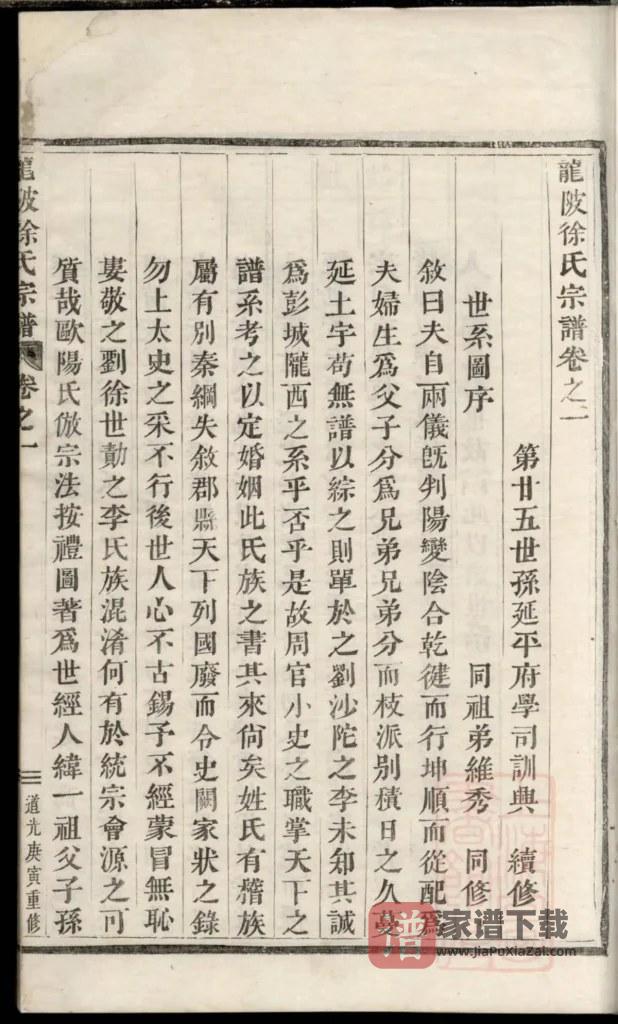 龍陂徐氏宗譜卷之一
第廿五世孫延平府學司訓典　續修
世系圖序　同祖弟維秀　同修
敘曰夫自兩儀旣判陽變陰合乾健而行坤順而從配爲
夫婦生爲父子分爲兄弟兄弟分而枝派别積日之久蔓
延土宇苟無譜以綜之則單於之劉沙陀之李未知其誠
爲彭城隴西之系乎否乎是故周官小史之職掌天下之
譜系考之以定婚姻此氏族之書其來尙矣姓氏有稽族
屬有别秦綱失敘郡縣天下列國廢而令史闕家狀之錄
勿上太史之采不行後世人心不古錫予不經蒙冒無恥
婁敬之劉徐世勣之李氏族混淆何有於統宗會源之可
質哉歐陽氏倣宗法按禮圖著爲世經人緯一祖父子孫
龍陂徐氏宗譜
卷之一
道光庚寅重修
譜 家谱下载
www.JiaPuXiaZai.com